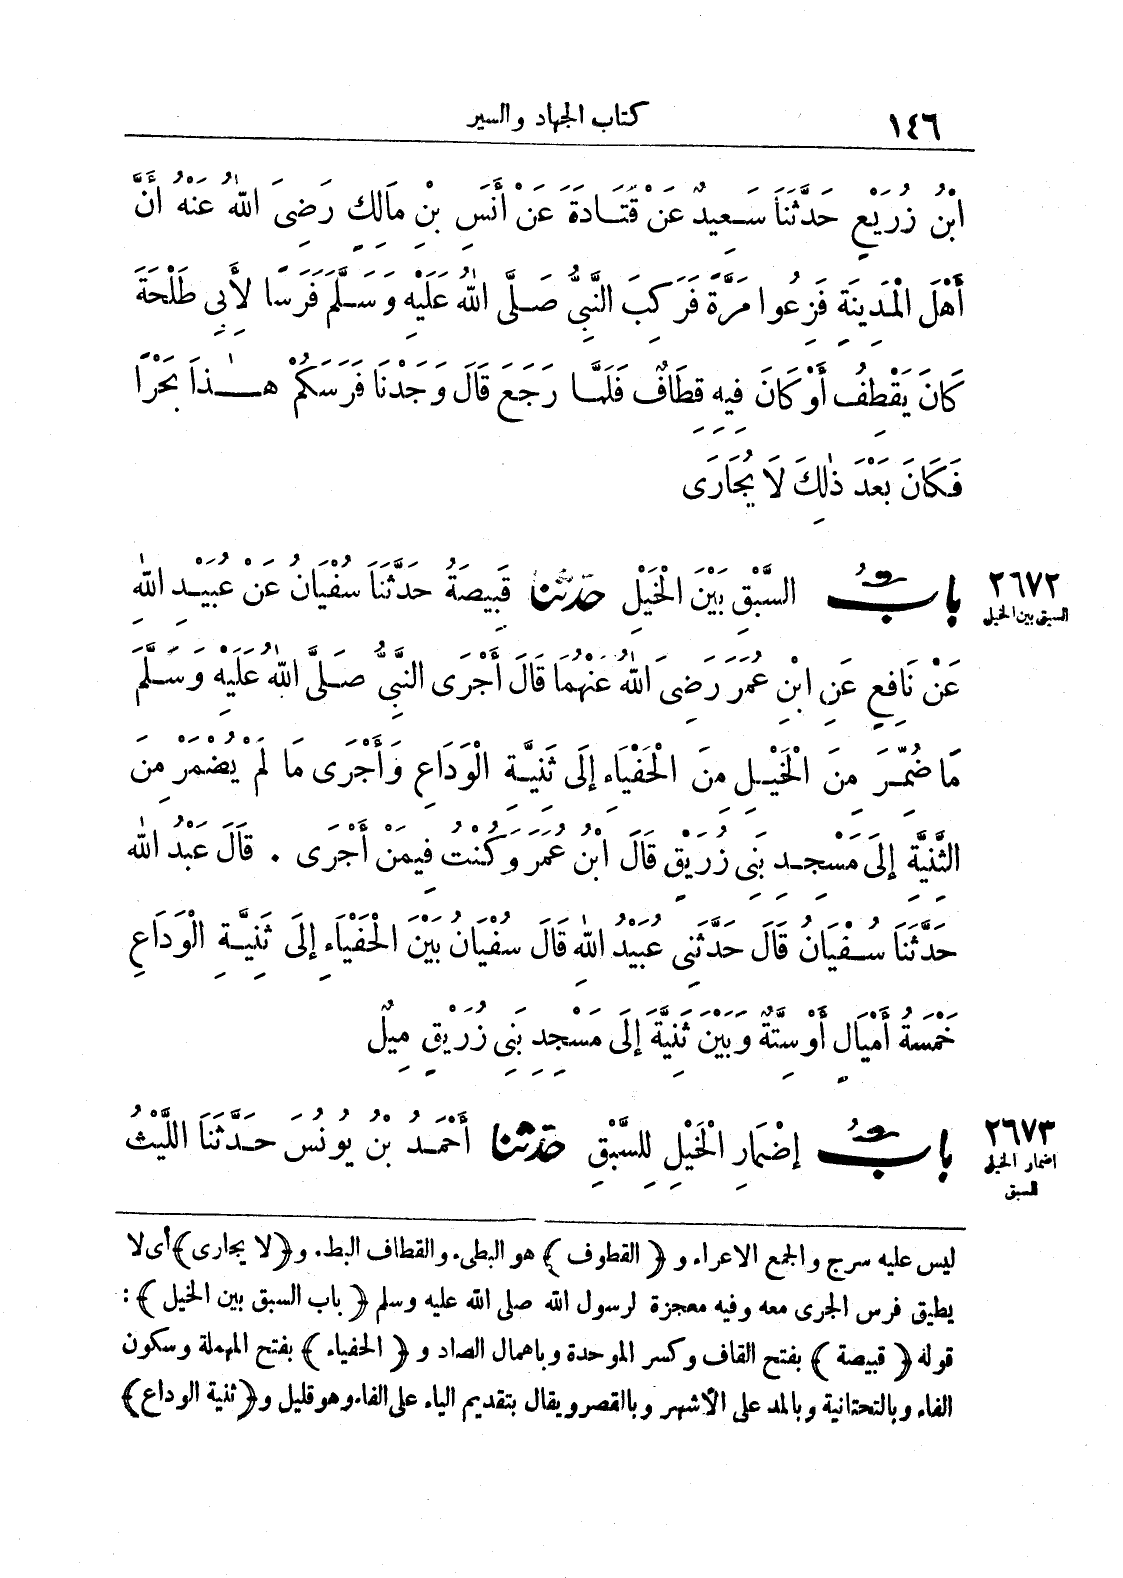 ١٤٦
كتاب الجهاد والسير
ابْنُ زُرَيْعٍ حَدَّثَنَا سَعِيدٌ عَنْ قَتَادَةَ عَنْ أَنَسِ بْنِ مَالِكٍ رَضِىَ اللهُ عَنْهُ أَنَّ
أَهْلَ الْمَدِينَةِ فَزِعُوا مَرَّةً فَرَكِبَ النَّبِىُّ صَلَّى اللهُ عَلَيْهِ وَسَلَّمَ فَرَسًا لِأَبِى طَلْحَةَ
كَانَ يَقْطِفُ أَوْ كَانَ فِيهِ قِطَافٌ فَلَمَّا رَجَعَ قَالَ وَجَدْنَا فَرَسَكُمْ هٰذَا بَحْرًا
فَكَانَ بَعْدَ ذٰلِكَ لَا يُجَارَى
٢٦٧٢
السبق بين الخيل
بابُ السَّبْقِ بَيْنَ الْخَيْلِ حَدَّثَنَا قَبِيصَةُ حَدَّثَنَا سُفْيَانُ عَنْ عُبَيْدِ اللهِ
عَنْ نَافِعٍ عَنِ ابْنِ عُمَرَ رَضِىَ اللهُ عَنْهُمَا قَالَ أَجْرَى النَّبِىُّ صَلَّى اللهُ عَلَيْهِ وَسَلَّمَ
مَا ضُمِّرَ مِنَ الْخَيْلِ مِنَ الْحَفْيَاءِ إِلَى ثَنِيَّةِ الْوَدَاعِ وَأَجْرَى مَا لَمْ يُضْمَرْ مِنَ
الثَّنِيَّةِ إِلَى مَسْجِدِ بَنِى زُرَيْقٍ قَالَ ابْنُ عُمَرَ وَكُنْتُ فِيمَنْ أَجْرَى . قَالَ عَبْدُ اللهِ
حَدَّثَنَا سُفْيَانُ قَالَ حَدَّثَنِى عُبَيْدُ اللهِ قَالَ سُفْيَانُ بَيْنَ الْحَفْيَاءِ إِلَى ثَنِيَّةِ الْوَدَاعِ
خَمْسَةُ أَمْيَالٍ أَوْ سِتَّةٌ وَبَيْنَ ثَنِيَّةِ إِلَى مَسْجِدِ بَنِى زُرَيْقٍ مِيلٌ
٢٦٧٣
اضمار الخيل
للسبق
بابُ إِضْمَارِ الْخَيْلِ لِلسَّبْقِ حَدَّثَنَا أَحْمَدُ بْنُ يُونُسَ حَدَّثَنَا اللَّيْثُ
ليس عليه سرج والجمع الاعراء و ﴿القطوف﴾ هو البطىء والقطاف البطء و﴿لا يجارى﴾ أى لا
يطيق فرس الجرى معه وفيه معجزة لرسول الله صلى الله عليه وسلم ﴿باب السبق بين الخيل﴾ :
قوله ﴿قبيصة﴾ بفتح القاف وكسر الموحدة وباهمال الصاد و ﴿الحفياء﴾ بفتح المهملة وسكون
الفاء وبالتحتانية وبالمد على الأشهر وبالقصر ويقال بتقديم الياء على الفاء وهو قليل و﴿ثنية الوداع﴾